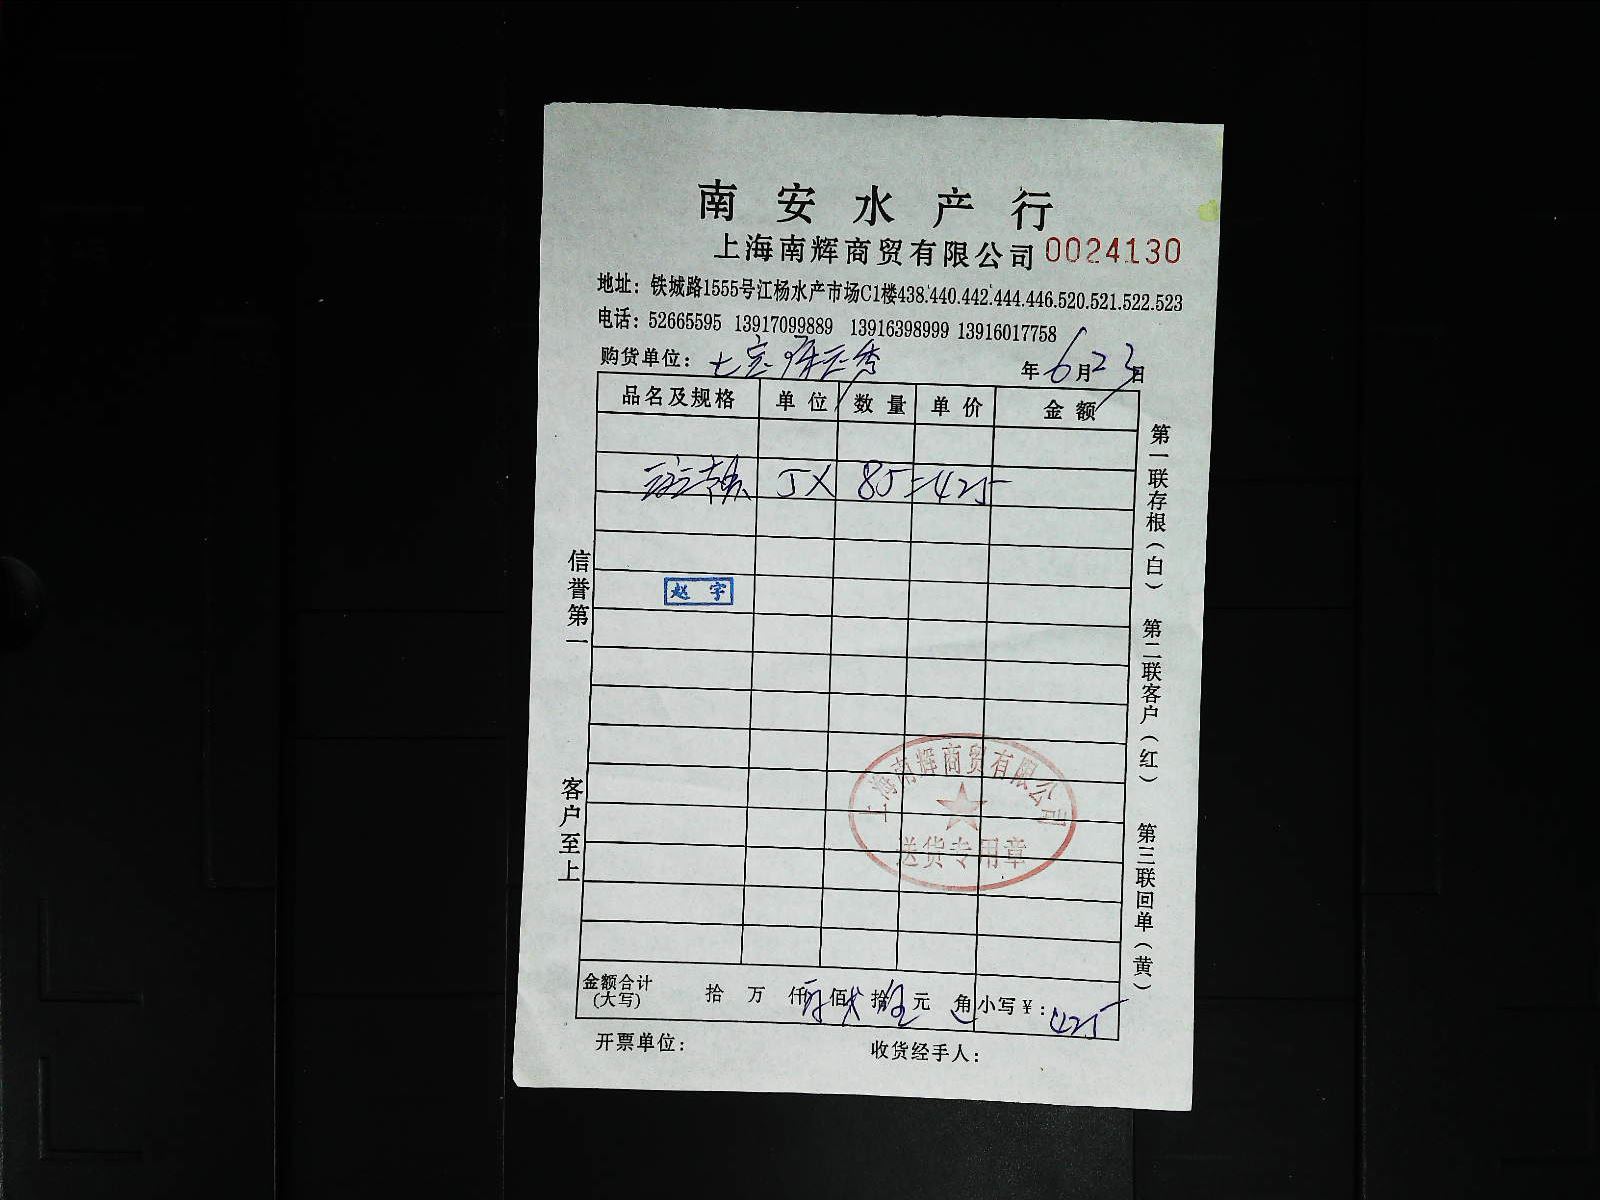 南安水产行
上海南辉商贸有限公司 0024130
地址：铁城路1555号江杨水产市场C1楼438.440.442.444.446.520.521.522.523
电话：52665595 13917099889 13916398999 13916017758
购货单位：七宝 年6月23日
品名及规格 单位 数量 单价 金额
5X 85=425
赵宇
信誉第一
客户至上
第一联存根（白）
第二联客户（红）
第三联回单（黄）
上海南辉商贸有限公司
送货专用章
金额合计 拾 万 仟 佰 拾 元 角 小写￥：425
（大写）
开票单位： 收货经手人：